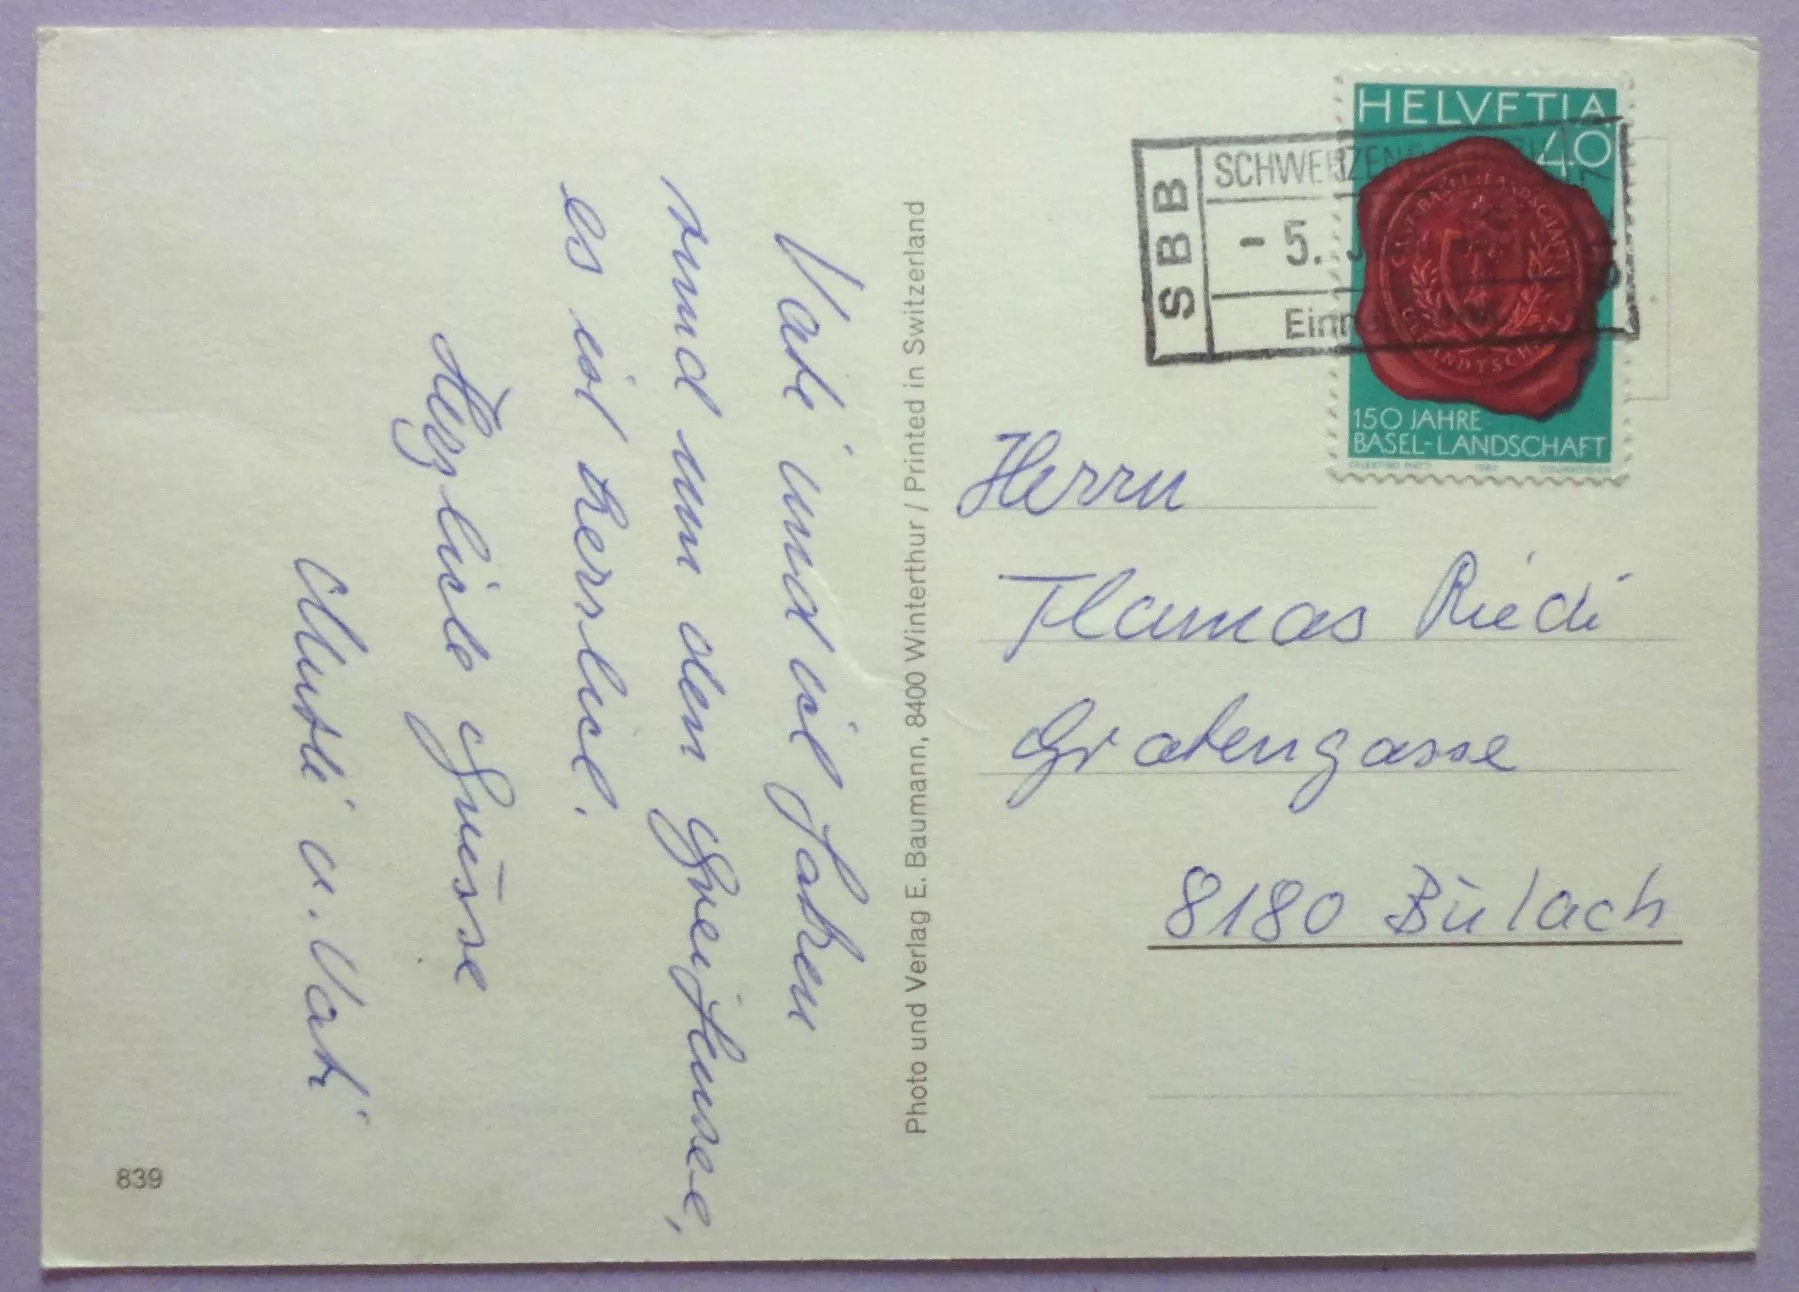 Vati und ich fahren
rund um den Greifensee,
es ist herrlich.
Herzliche Grüsse
Mutti u. Vati
839
Photo und Verlag E. Baumann, 8400 Winterthur / Printed in Switzerland
HELVETIA
40
CANT. BASEL LANDSCHAFT
150 JAHRE
BASEL-LANDSCHAFT
COURVOISIER
SBB
- 5.
Herrn
Thomas Riedi
Grabengasse
8180 Bülach